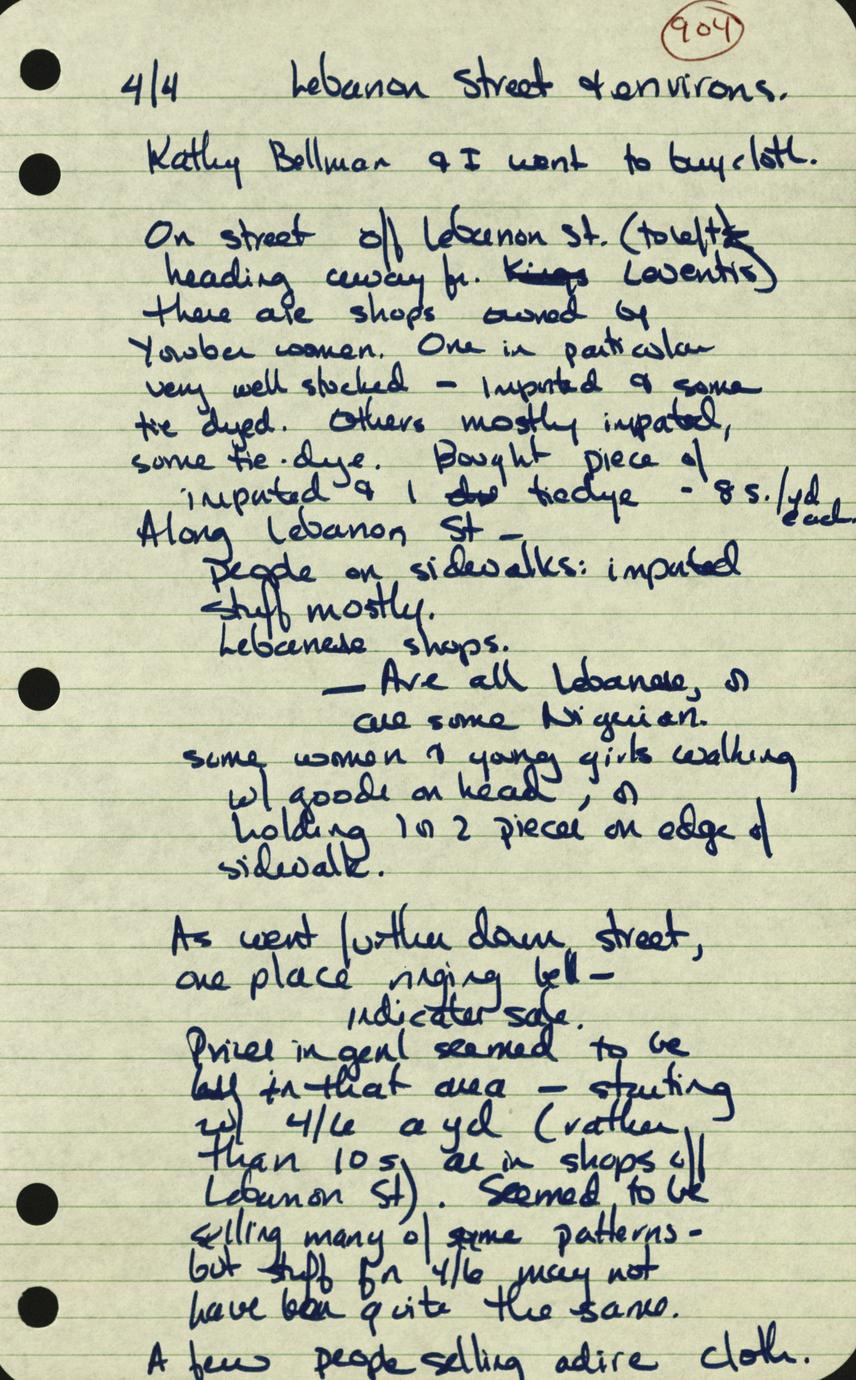 904
4/4 Lebanon Street & environs.
Kathy Bellman & I went to buy cloth.
On street off Lebanon St. (to left
heading away fr. Kings Leventis)
there are shops owned by
Yoruba women. One in particular
very well stocked – imported & some
tie dyed. Others mostly imported,
some tie-dye. Bought piece of
imported & 1 tiedye - 8 s./yd
each.
Along Lebanon St –
people on sidewalks: imported
stuff mostly.
Lebanese shops.
— Are all Lebanese, or
are some Nigerian.
some women & young girls walking
w/ goods on head, or
holding 1 or 2 pieces on edge of
sidewalk.
As went further down street,
one place ringing bell –
indicates sale.
Prices in genl seemed to be
in that area – starting
w/ 4/6 a yd (rather
than 10 s, as in shops off
Lebanon St). Seemed to be
selling many of same patterns -
but stuff for 4/6 may not
have been quite the same.
A few people selling adire cloth.